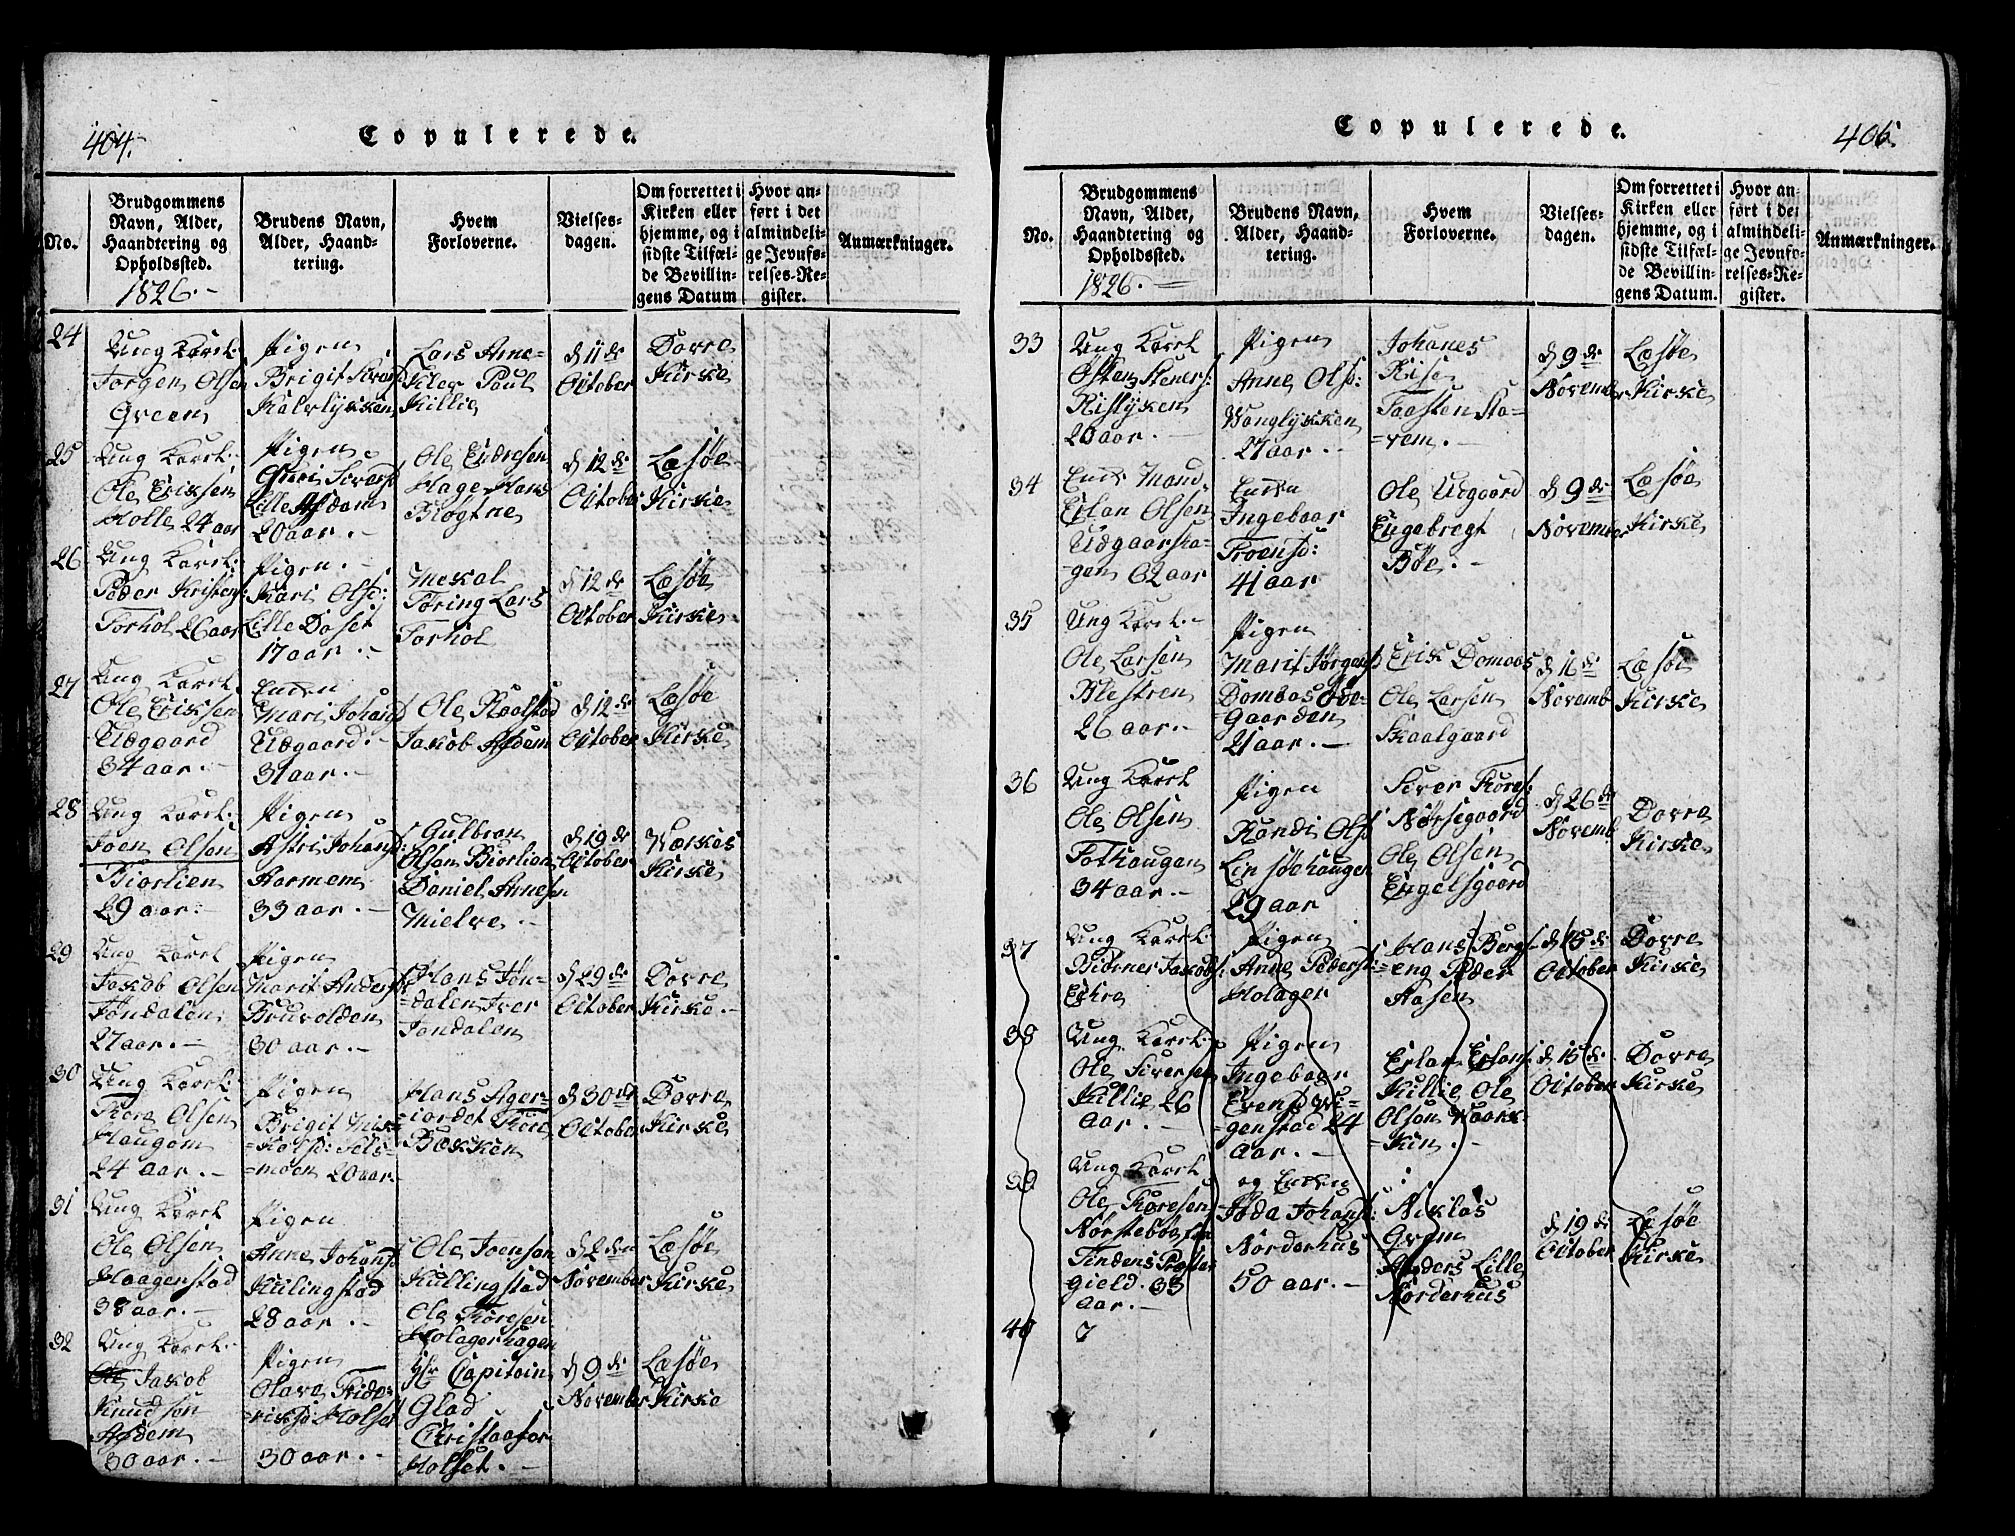 404.
Copulerede.
No.
Brudgommens
Navn, Alder,
Haandtering og
Opholdssted.
1826.
Brudens Navn,
Alder, Haand-
tering.
Hvem
Forloverne.
Vielses-
dagen.
Om forrettet i
Kirken eller
hjemme, og i
sidste Tilfæl-
de Bevillin-
gens Datum
Hvor an-
ført i det
almindeli-
ge Jevnfø-
relses-Re-
gister.
Anmærkninger.
24
Ung Karl
Jorgen Olsen
Green
Pigen
Brigit Sivers
Kalvlykken
Lars Arne-
Paul
Killie
d 11 de
October
Dovre
Kirke
25
Ung Karl
Ole Eriksen
Holle 24 aar
Pigen
Lille
20 aar.
Ole Endresen
Hage Hans
Bløgtne
d 12 de
October
Læsøe
Kirke
26
Ung Karl
Peder Kristens:
Forhol 26 aar
Pigen.
Kari Olsd:
Lille Doset
17 aar.
Mekal
Toring Lars
Forhol
d 12 de
October
Læsøe
Kirke
27
Ung Karl
Ole Eriksen
Udgaard
34 aar.
Enken
Mari Johans
Udgaard.
31 aar.
Ole Raalstad
Jakob
d 12 de
October
Læsøe
Kirke
28
Ung Karl
Joen Olsen
Biorlien
29 aar.
Pigen
Astri Johans
Aarmem
33 aar.
Gulbran
Olsen Biorlien
Daniel Arnesen
Mielve.
d 19 de
October
Wærkes
Kirke
29
Ung Karl
Jakob Olsen
Jondalen
27 aar.
Pigen
Marit Anders
Bruvolden
30 aar.
Hans Jon-
=dalen Iver
Jondalen
d 29 de
October
Dovre
Kirke.
30
Ung Karl
Tore Olsen
Haugom
24 aar.
Pigen
Brigit Mi-
=kolsd:
=moen 20 aar
Hans Ager-
=iordet Tore
Bækken
d 30 de
October
Dovre
Kirke
31
Ung Karl
Ole Olsen
Haagenstad
38 aar.
Pigen
Anne Johans
Kulingstad
28 aar.
Ole Joensen
Kullingstad
Ole Toresen
Holagerhagen
d 2 den
November
Læsøe
Kirke
32
Ung Karl
Jakob
Knudsen
30 aar.
Pigen
Olava Fride-
=riksd: Holset
30 aar.
Hr Capitain
Glad
Christaafor
Holset.
d 9 de
November
Læsøe
Kirke
Copulerede.
405.
No.
Brudgommens
Navn, Alder,
Haandtering og
Opholdssted.
1826.
Brudens Navn,
Alder, Haand-
tering.
Hvem
Forloverne.
Vielses-
dagen.
Om forrettet i
Kirken eller
hjemme, og i
sidste Tilfæl-
de Bevillin-
gens Datum.
Hvor an-
ført i det
almindeli-
ge Jevnfø-
relses-Re-
gister.
Anmærkninger.
33
Ung Karl
Østen Steners:
Rislyken
20 aar.
Pigen
Anne Olsd:
Wanglykken
27 aar.
Johanes
Rise
Taasten Sta-
=vem.
d 9 de
November
Læsøe
Kirke
34
Enke Mand
Erlan Olsen
Udgaarsha-
=gen 62 aar
Enken
Ingebaar
Troensd:
41 aar
Ole Udgaard
Engebregt
Bøe.
d 9 de
November
Læsøe
Kirke
35
Ung Karl
Ole Larsen
Blestren
26 aar.
Pigen
Marit Jørgens
Dombas Øde-
=gaarden
21 aar.
Erik Domaas
Ole Larsen
Skaalgaard
d 16 de
Novemb
Læsøe
Kirke
36
Ung Karl
Ole Olsen
Tofthaugen
34 aar.
Pigen
Randi Ols
Linsøehaugen
29 aar
Siver Tores:
Nørsegaard
Ole Olsen
Engelsgaard
d 26 de
Novemb.
Dovre
Kirke
37
Ung Karl
Biørner Jakobs:
Echre
Pigen
Anne Peders
Holager
Hans Berg-
=eng Peder
Aasen
d 15 de
October
Dovre
Kirke
38
Ung Karl
Ole Siversen
Killie 26
aar.
Pigen
Ingebaar
Evensd Wi-
=genstad 24
aar.
Erlan Erlans
Killie Ole
Olson Waark-
=kin.
d 15 de
October
Dovre
Kirke
39
Ung Karl
Ole Toresen
Nørstebøe
Tindens Præste
gield. 33
aar.
og Enken
Joda Johans:
Norderhus
50 aar.
Niklos
Grøm
Anders Lille
Norderhus
d 19 de
October
Læsøe
Kirke
40